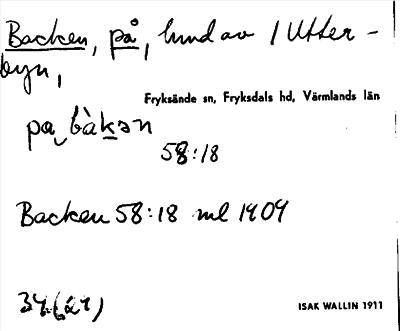 Backen, på, hmd av 1 Utter-
byn,
Fryksände sn, Fryksdals hd, Värmlands län
pa bàkən
58:18
Backen 58:18 ml 1909
34
ISAK WALLIN 1911